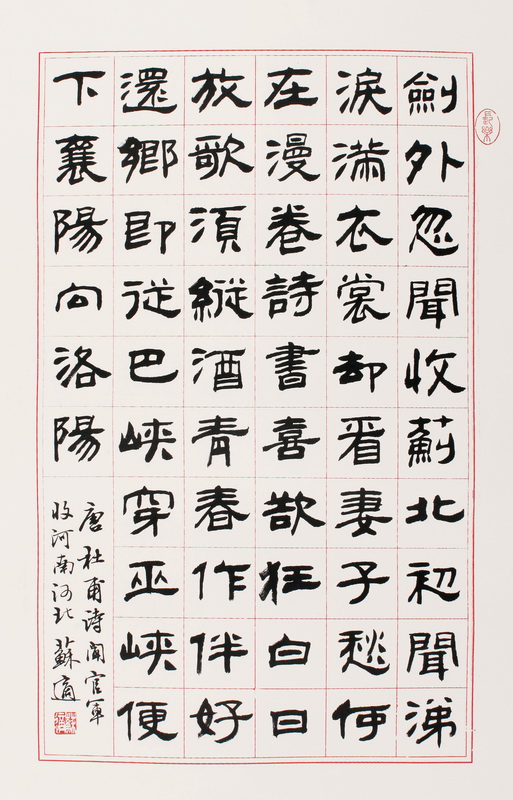 劍外忽聞收薊北初聞涕
淚滿衣裳却看妻子愁何
在漫卷詩書喜欲狂白日
放歌須縱酒青春作伴好
還鄉即從巴峽穿巫峽便
下襄陽向洛陽
唐杜甫詩聞官軍
收河南河北 蘇適
長樂